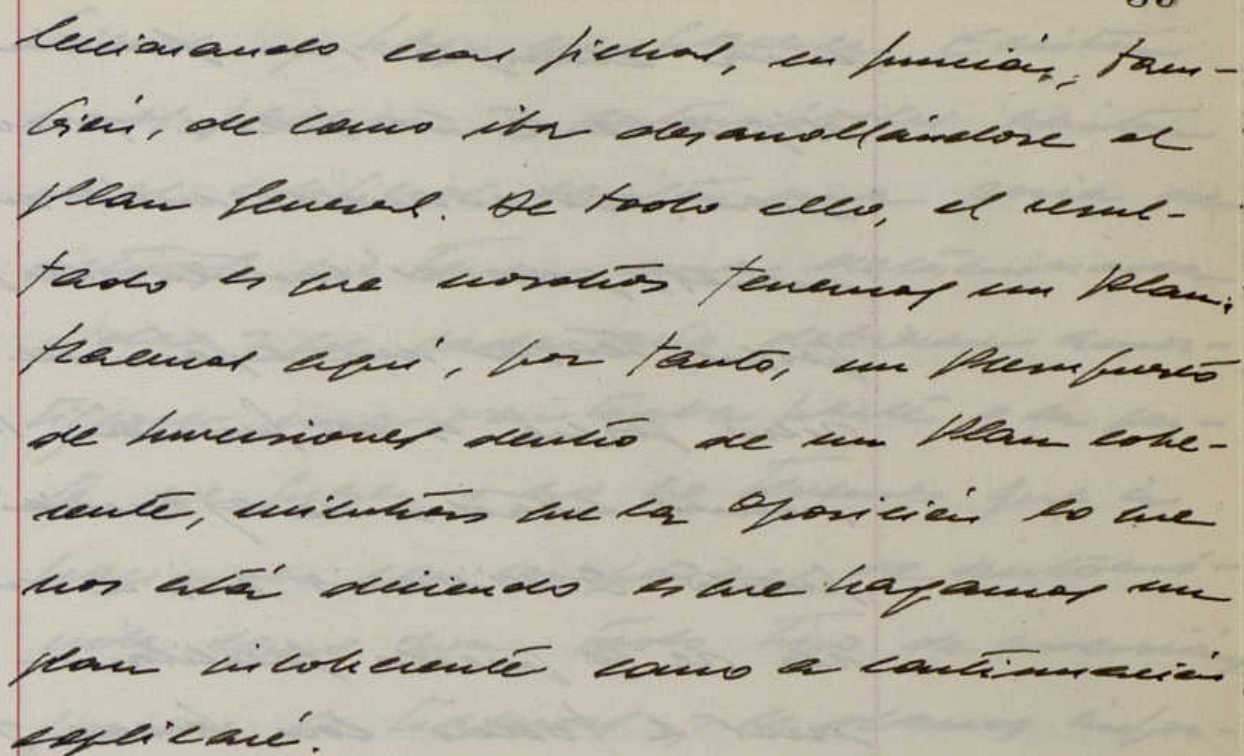 leccionando esas fichas, en función, tam-
bién, de como iba desarrollándose el
Plan General. De todo ello, el resul-
tado es que nosotros tenemos un Plan.
traemos aquí, por tanto, un Presupuesto
de Inversiones dentro de un Plan cohe-
rente, mientras que la Oposición lo que
nos está diciendo es que hagamos un
plan incoherente como a continuación
explicaré.